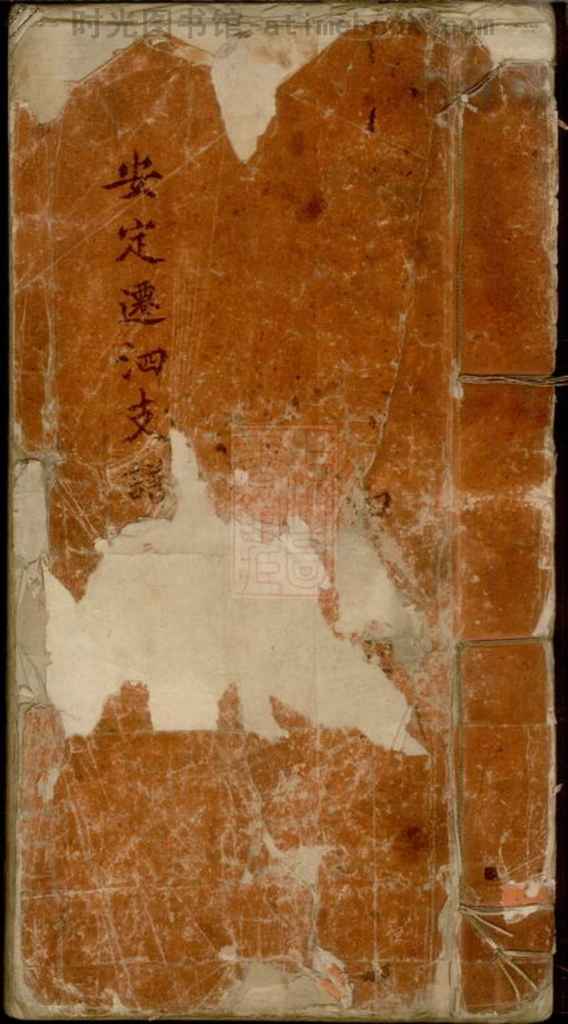 时光图书馆-atimebook.com
安定遷泗支譜